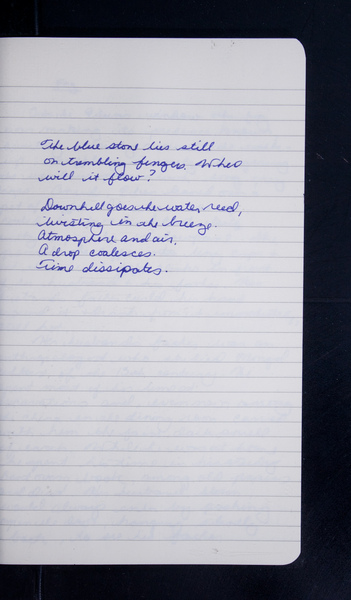 The blue stone lies still
on trembling fingers. When
will it flow?
Downhill goes the water reed,
twisting in the breeze.
Atmosphere and air.
A drop coalesces.
Time dissipates.